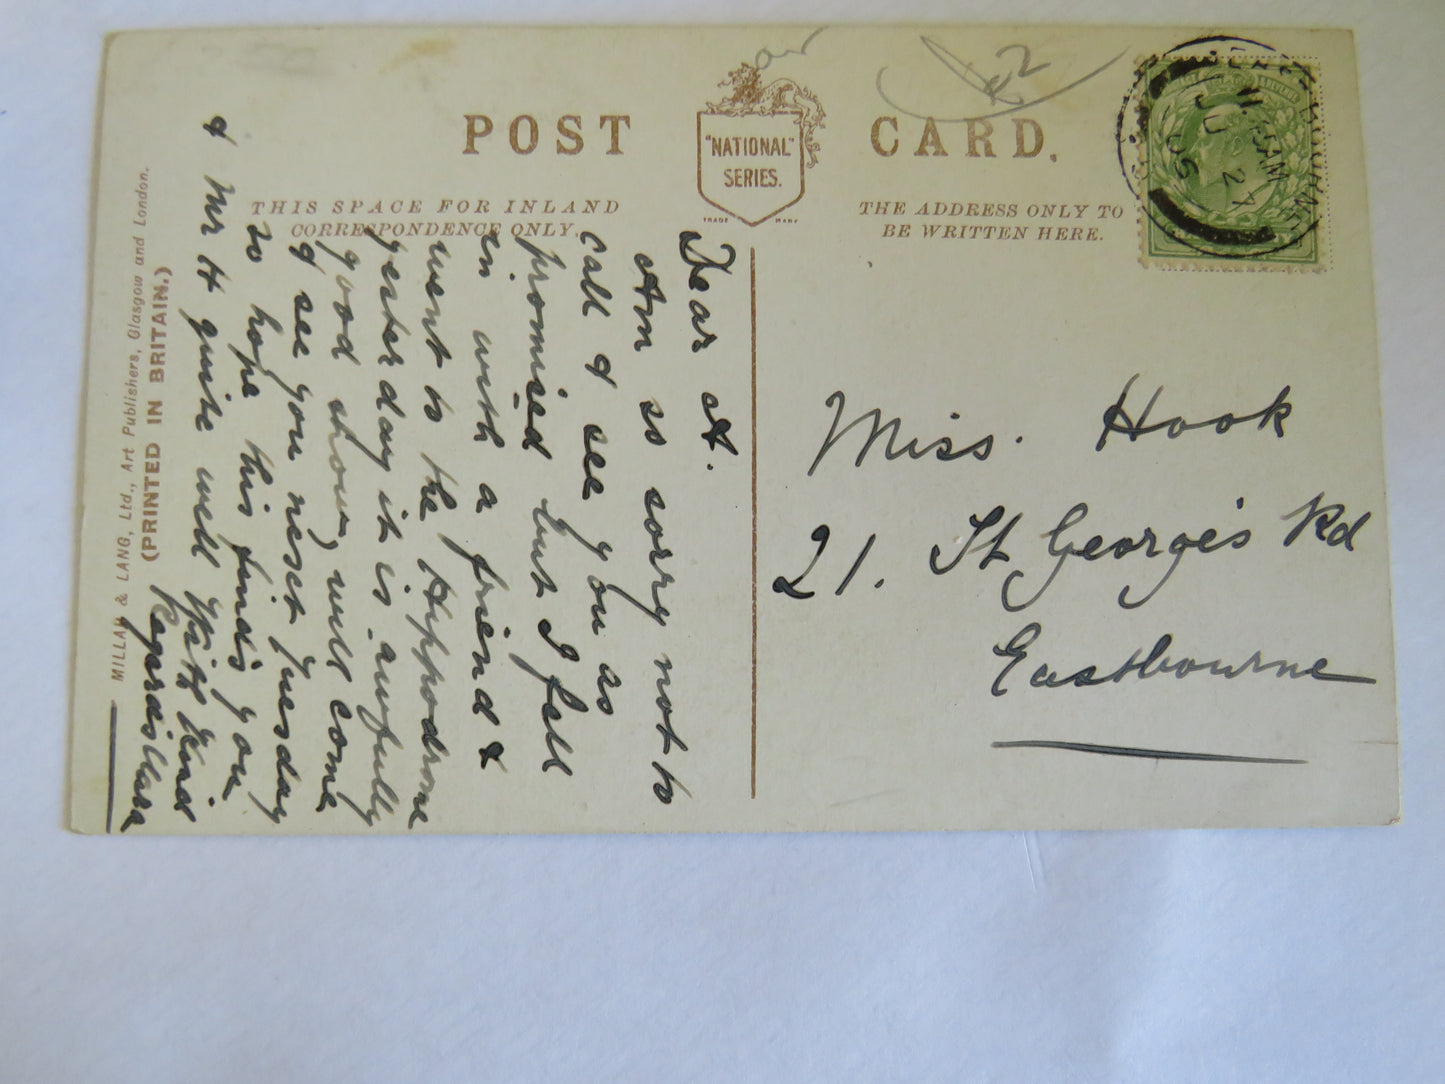 POST CARD.
"NATIONAL"
SERIES.
TRADE MARK
THIS SPACE FOR INLAND
CORRESPONDENCE ONLY.
THE ADDRESS ONLY TO
BE WRITTEN HERE.
Dear A.
Am so sorry not to
call & see you as
promised but I fell
in with a friend &
went to the Hippodrome
yesterday it is awfully
good show, will come
& see you next Tuesday
so hope this finds you
& Mr H quite well With Kind
Regards Clara
Miss. Hook
21. St George's Rd
Eastbourne
MILLAR & LANG, Ltd., Art Publishers, Glasgow and London.
(PRINTED IN BRITAIN.)
11.15AM
JU 27
05